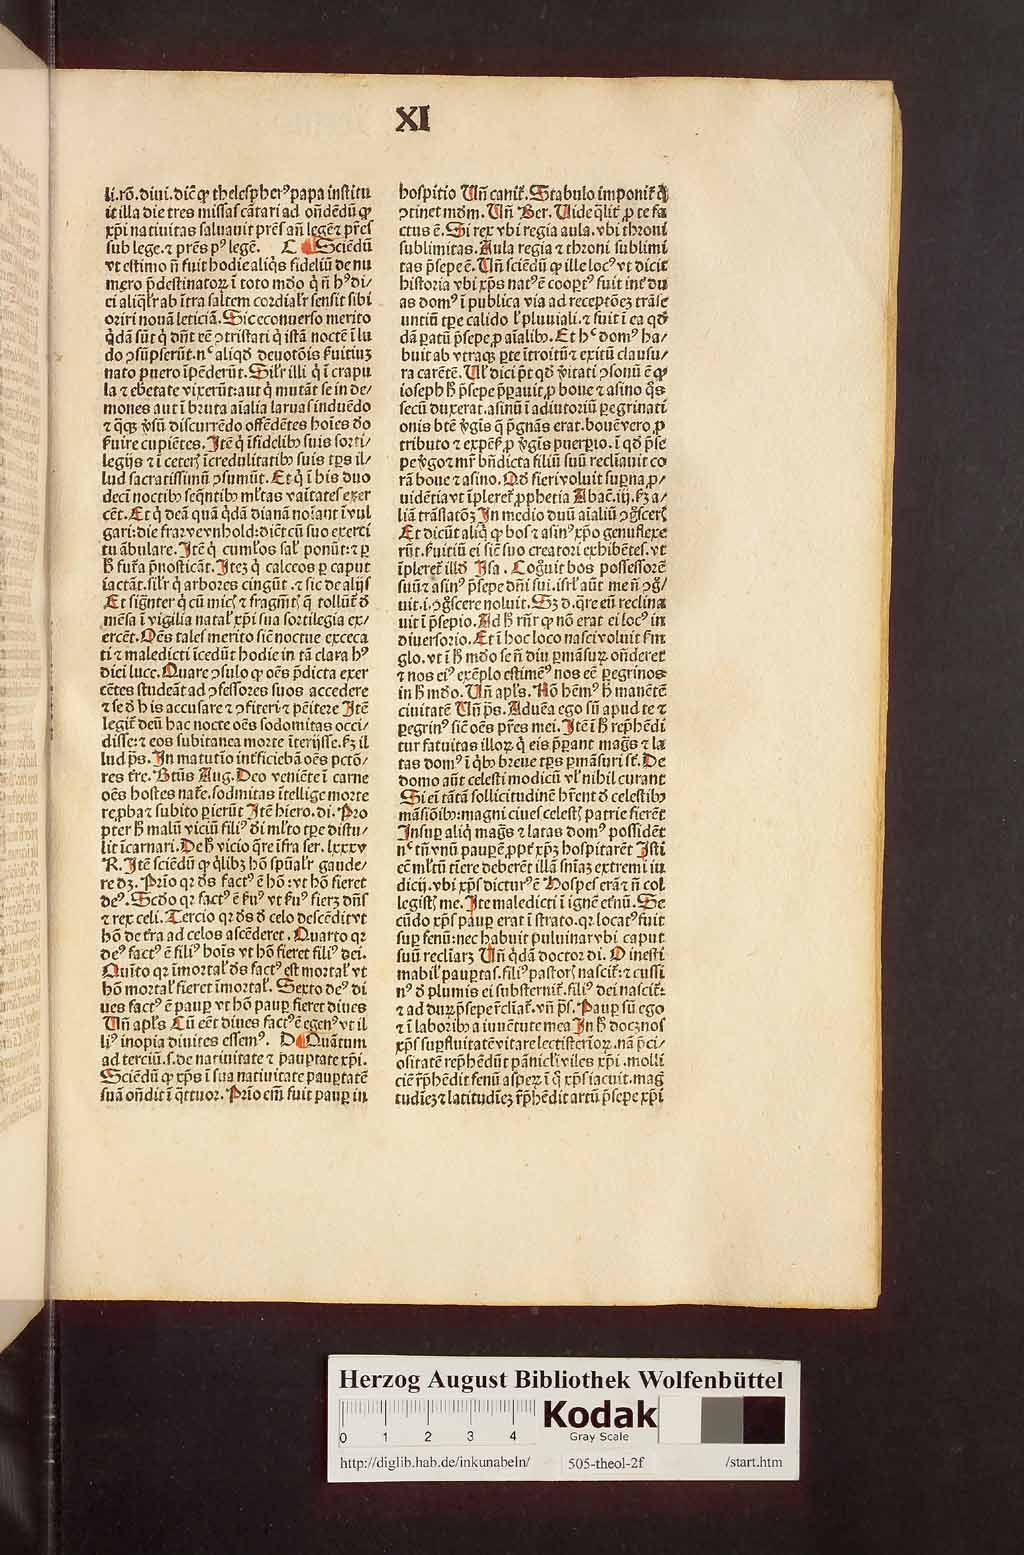 XI
li. rō. diui. dic̄ ꝙ thelespherꝰ papa institu
it illa die tres missas cātari ad on̄dēdū ꝙ
xp̄i natiuitas saluauit prēs an̄ legē ⁊ prēs
sub lege. ⁊ prēs pꝰ legē. C Sciēdū
vt estimo n̄ fuit hodie aliq̄s fideliū de nu
mero p̄destinatoꝝ ī toto mūdo
ci aliql̄r ab ītra saltem cordial̓r sensit sibi
oriri nouā leticiā. Sic econuerso merito
q̄dā sūt q̄ dn̄t eē ꝯtristati q̄ istā noctē ī lu
do ꝯsūpserūt. aliqd̄ deuotōis ẜuitiuꝫ
nato puero īpēderūt. Sil̓r illi q̄ ī crapu
la ⁊ ebetate vixerūt: aut q̄ mutāt se in de/
mones aut ī bruta aīalia laruas induēdo
⁊ discurrēdo offēdētes hoīes
ẜuire cupiētes. Itē q̄ īfidelibꝰ suis sorti/
legijs ⁊ ī ceteris īcredulitatibꝰ suis tꝑs il/
lud sacratissimū ꝯsumūt. Et q̄ ī his duo
decī noctibꝰ seqn̄tibꝰ ml̓tas vaītates exer
cēt. Et q̄ deā quā q̄dā dianā noīant ī vul
gari: die fraw vnhold: dicūt cū suo exerci
tu ābulare. Itē q̄ cum̄los sal̓ ponūt: ⁊ ꝑ
fut̄a p̄nosticāt. Iteꝫ q̄ calceos ꝑ caput
iactāt. sil̓r q̄ arbores cingūt. ⁊ sic de alijs
Et q̄ cū micis ⁊ fragmētis q̄ tollūt̄
mēsa ī vigilia natal̓ xp̄i sua sortilegia ex/
ercēt. Oēs tales merito siē noctue exceca
ti ⁊ maledicti īcedūt hodie in tā clara hꝰ
diei luce. Quare ꝯsulo ꝙ oēs p̄dicta exer
cētes studeāt ad ꝯfessores suos accedere
⁊ se de his accusare ⁊ ꝯfiteri ⁊ pēitere Itē
legit̄ deū hac nocte oēs sodomitas occi/
disse: ⁊ eos subitanea morte īterijsse. il
lud p̄s. In matutino int̓ficiebā oēs pctō/
res tr̄e. Btūs Aug. Deo veniēte ī carne
oēs hostes nat̄e. sodmitas ītellige morte
reꝓba ⁊ subito ꝑierūt Itē hiero. di. Pro
pter malū viciū filiꝰ dī ml̓to tꝑe distu/
lit īcarnari. De vicio q̄re īfra ser. lxxxv
R. Itē sciēdū ꝙ q̄libꝫ hō spūal̓r gaude/
re dꝫ. Prīo qꝛ dꝰs factꝰ ē hō: vt hō fieret
deꝰ. Scdo qꝛ factꝰ ē ẜuꝰ vt ẜuꝰ fieret dn̄s
⁊ rex celi. Tercio qꝛ de celo descēdit vt
hō de tr̄a ad celos ascēderet. Quarto qꝛ
deꝰ factꝰ ē filiꝰ hoīs vt hō fieret filiꝰ dei.
Quīto qꝛ īmortal̓ factꝰ est mortal̓ vt
hō mortal̓ fieret īmortal̓. Sexto deꝰ di
ues factꝰ ē pauꝑ vt hō pauꝑ fieret diues
Vn̄ apl̓s Cū eēt diues factꝰ ē egenꝰ vt il
liꝰ inopia diuites essemꝰ. D Quātum
ad terciū. s. de natiuitate ⁊ pauꝑtate xp̄i.
Sciēdū ꝙ xp̄s ī sua natiuitate pauꝑtatē
suā on̄dit ī q̄ttuor. Prīo em̄ fuit pauꝑ in
hospitio Vn̄ canit̄. Stabulo imponit̄ q̄
ꝯtinet mūdm̄. Vn̄ Ber. Vide q̄lit̓ ꝓ te fa
ctus ē. Si rex vbi regia aula. vbi throni
sublimitas. Aula regia ⁊ throni sublimi
tas p̄sepe ē. Vn̄ sciēdū ꝙ ille locꝰ vt dicit
historia vbi xp̄s natꝰ ē cooꝑtꝰ fuit int̓ du
as domꝰ ī publica via ad receptōeꝫ trāse
untiū tꝑe calido l̓ pluuiali. ⁊ fuit ī ea qd̄
dā ꝑatū p̄sepe ꝓ aīalibꝰ. Et hec domꝰ ha/
buit ab vtraqꝫ ꝑte ītroitū ⁊ exitū clausu/
ra carētē. Vl̓ dici pt̄ qd̄ v̓itati ꝯsonū ē ꝙ
ioseph p̄sepe p̄ꝑauit ꝓ boue ⁊ asino q̄s
secū duxerat. asinū ī adiutoriū ꝑegrinati
onis btē v̓gīs q̄ p̄gnās erat. bouē vero ꝓ
tributo ⁊ expēẜ ꝓ v̓gīs puerꝑio. ī qd̄ p̄se
pe v̓go ⁊ mr̄ bn̄dicta filiū suū recliauit co
rā boue ⁊ asino. Qd̄ fieri voluit supna ꝓ/
uidētia vt īpleret̄ ꝓphetia Abac̄. iij. a/
liā trāslatōeꝫ In medio duū aīaliū ꝯgsceris
Et dicūt aliq̄ ꝙ bos ⁊ asinꝰ xp̄o genuflexe
rūt. ẜuitiū ei siē suo creatori exhibētes. vt
īpleret̄ illd̄ Isa. Cognouit bos possessorē
suū ⁊ asinꝰ p̄sepe dn̄i sui. isrl̓ aūt me n̄ ꝯg̓/
uit. i. ꝯg̓scere noluit. Sꝫ d. q̄re eū reclina
uit ī p̄sepio. Ad rn̄r ꝙ nō erat ei locꝰ in
diuersorio. Et ī hoc loco nasci voluit
glo. vt ī mūdo se n̄ diu ꝑmāsuꝝ on̄deret
⁊ nos eiꝰ exēplo estimemꝰ nos eē ꝑegrinos
in mūdo. Vn̄ apl̓s. Nō hēmꝰ manētē
ciuitatē Vn̄ p̄s. Aduēa ego sū apud te ⁊
ꝑegrinꝰ siē oēs pr̄es mei. Itē ī rep̄hēdi
tur fatuitas illoꝝ q̄ eis p̄ꝑant mag̓s ⁊ la
tas domꝰ ī qͥbꝰ breue tꝑs ꝑmāsuri st̄. De
domo aūt celesti modicū vl̓ nihil curant
Si eī tātā sollicitudinē hr̄ent de celestibꝰ
māsiōibꝰ: magni ciues celestis patrie fierēt
Insuꝑ aliq̄ mag̓s ⁊ latas domꝰ possidēt
nec tn̄ vnū pauꝑē ꝓpt̓ xp̄ꝫ hospitarēt Isti
eē ml̓tū tīere deberēt illā sn̄iaꝫ extremi iu
dicij. vbi xp̄s dicturꝰ ē Hospes erā ⁊ n̄ col
legistis me. Ite maledicti ī ignē etn̄ū. Se
cūdo xp̄s pauꝑ erat ī strato. qꝛ locatꝰ fuit
suꝑ fenū: nec habuit puluinar vbi caput
suū recliaret Vn̄ q̄dā doctor di. O inesti
mabil̓ pauꝑtas. filiꝰ pastoris nascit̄: ⁊ cussi
nꝰ de plumis ei substernit̄. filiꝰ dei nascit̄:
⁊ ad duꝝ p̄sepe rec̄liat̄. vn̄ p̄s. Pauꝑ sū ego
⁊ ī laboribꝰ a iuuētute mea In docꝫ nos
xp̄s suꝑfluitatē vitare lectisternioꝝ. nā p̄ci/
ositatē rep̄hēdūt pānicl̓i viles xp̄i. molli
ciē rep̄hēdit fenū asꝑeꝝ ī q̄ xp̄s iacuit. mag
tudīeꝫ ⁊ latitudīeꝫ rep̄hēdit artū p̄sepe xp̄i
Herzog August Bibliothek Wolfenbüttel
0 1 2 3 4
Kodak
Gray Scale
http://diglib.hab.de/inkunabeln/ 505-theol-2f /start.htm